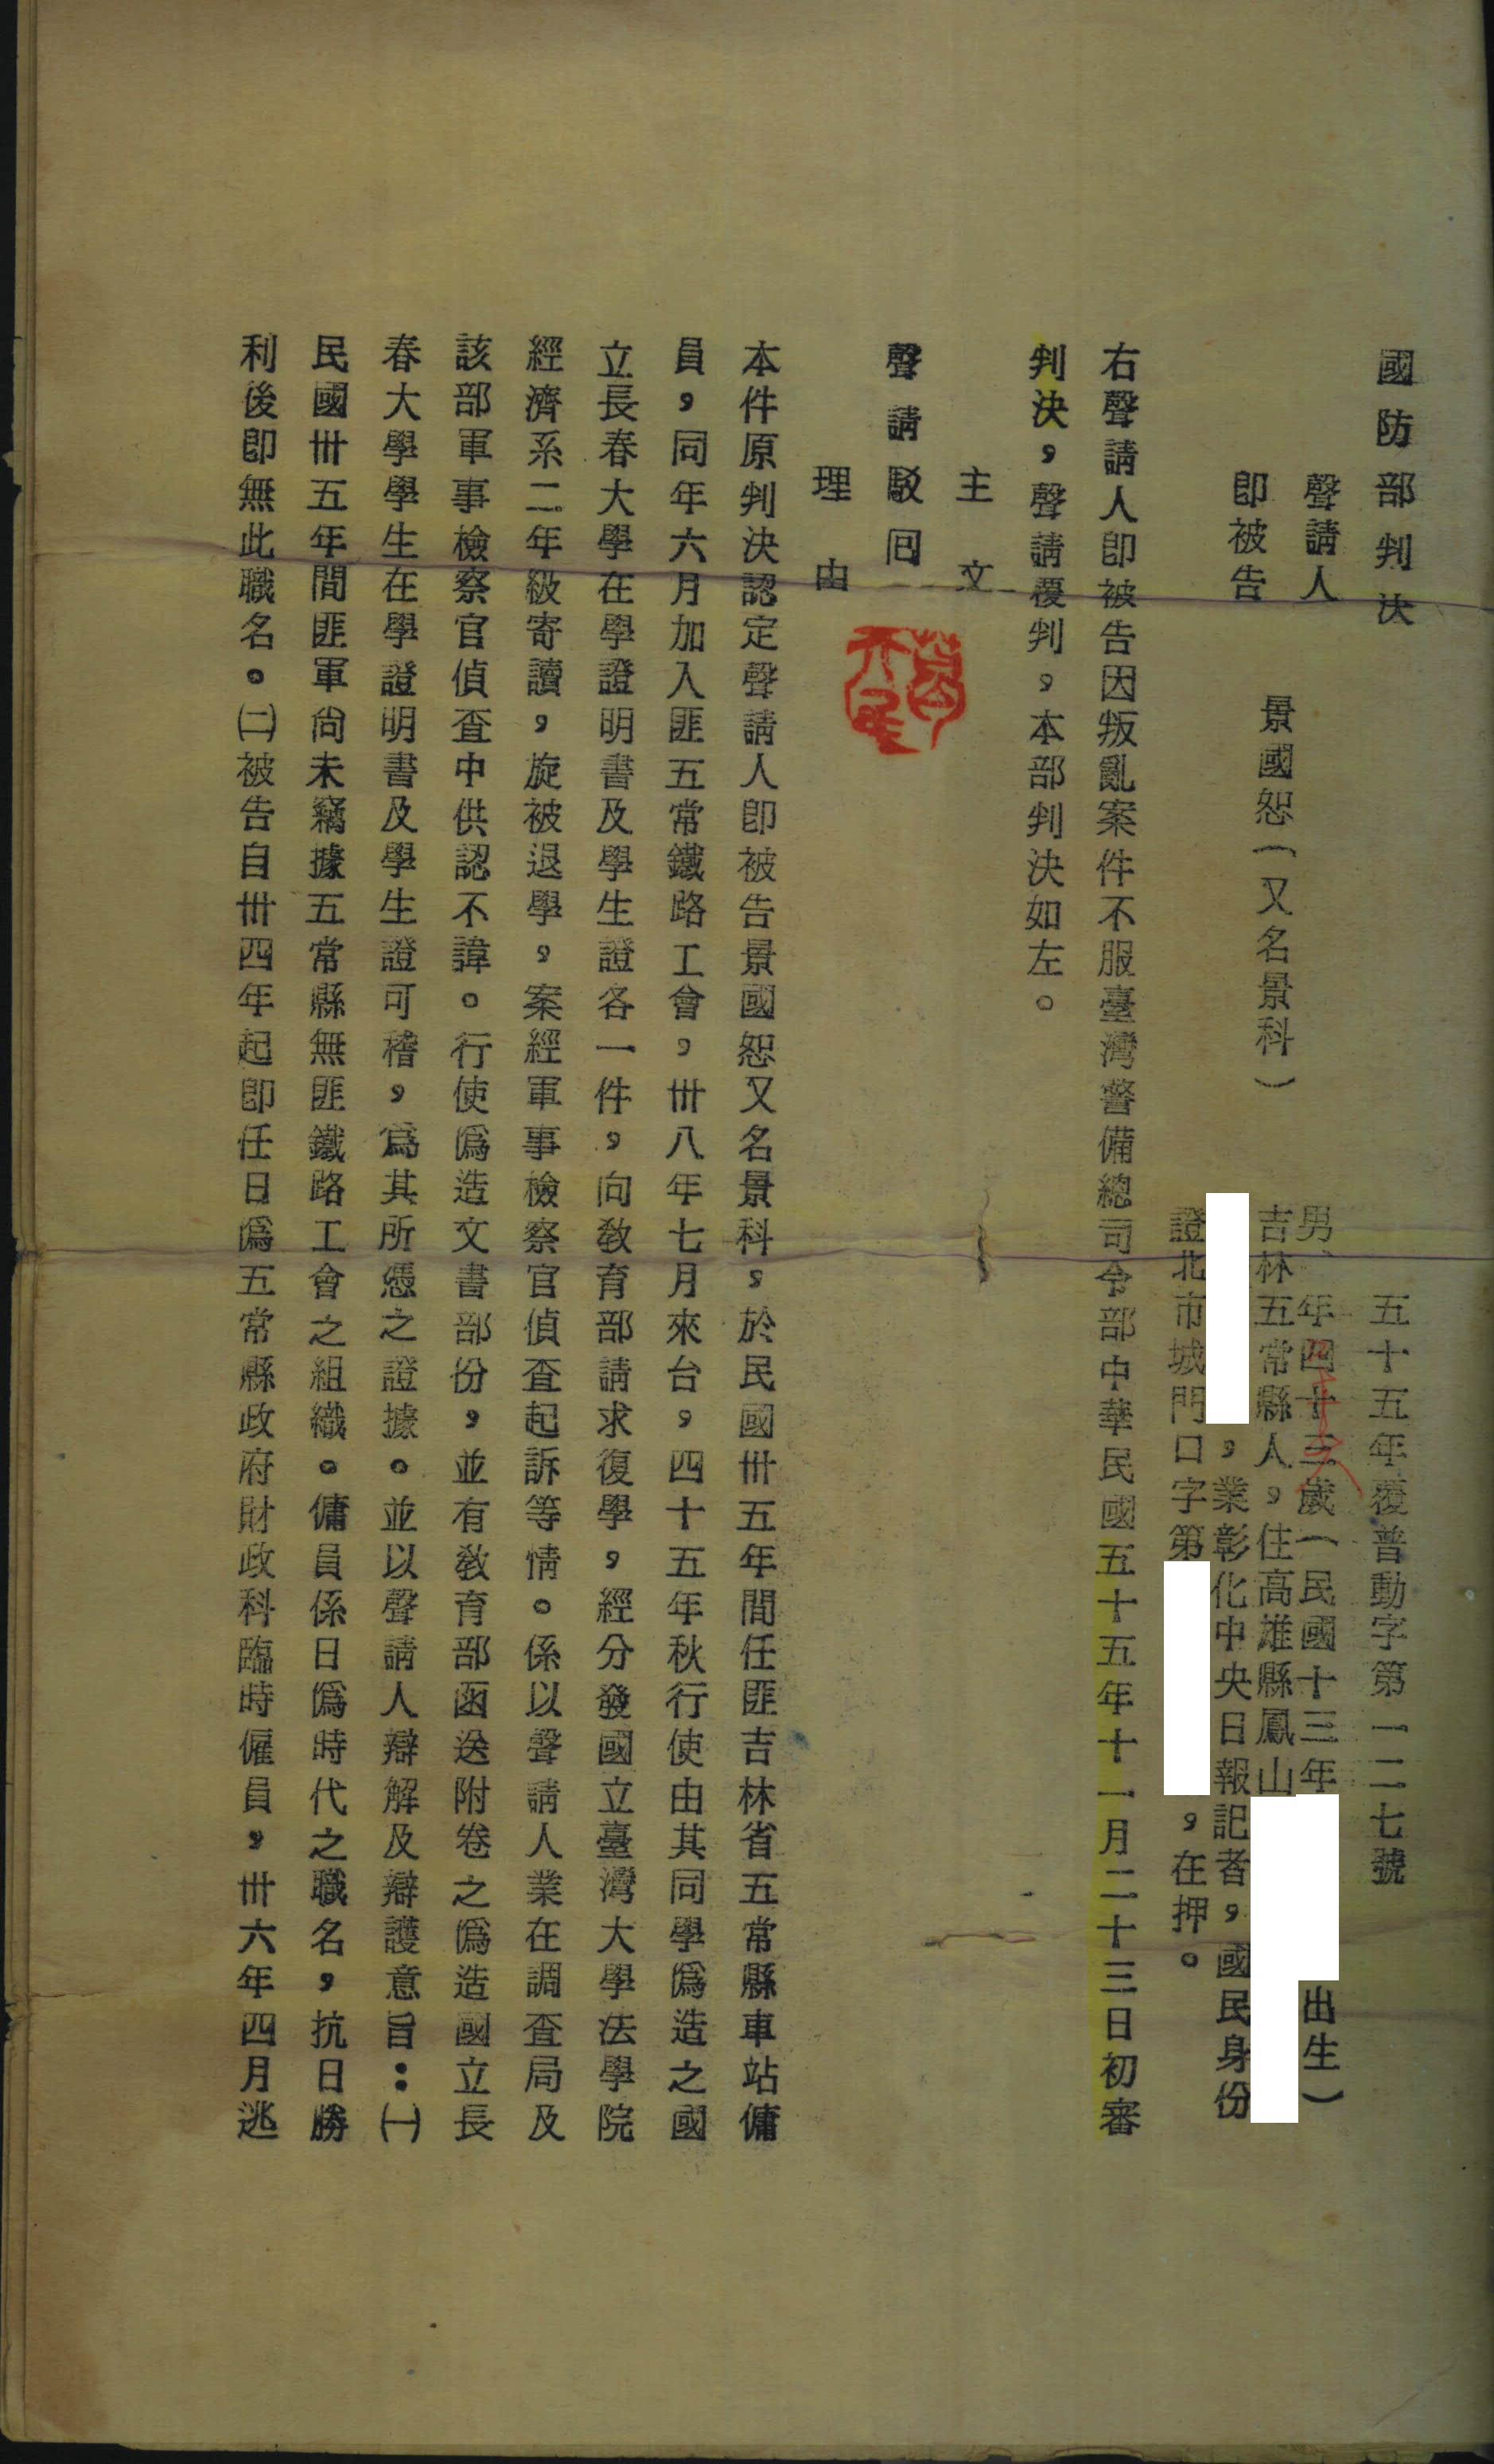 國防部判決
五十五年覆普動字第一二七號
聲請人
即被告
景國恕(又名景科)
男、年四十三歲(民國十三年
出生)
吉林五常縣人,住高雄縣鳳山
,業彰化中央日報記者,國民身份
證北市城門口字第
,在押。
右聲請人即被告因叛亂案件不服臺灣警備總司令部中華民國五十五年十一月二十三日初審
判決,聲請覆判,本部判決如左。
主文
聲請駁回
理由
本件原判決認定聲請人即被告景國恕又名景科,於民國卅五年間任匪吉林省五常縣車站傭
員,同年六月加入匪五常鐵路工會,卅八年七月來台,四十五年秋行使由其同學偽造之國
立長春大學在學證明書及學生證各一件,向教育部請求復學,經分發國立臺灣大學法學院
經濟系二年級寄讀,旋被退學,案經軍事檢察官偵查起訴等情。係以聲請人業在調查局及
該部軍事檢察官偵查中供認不諱。行使偽造文書部份,並有教育部函送附卷之偽造國立長
春大學學生在學證明書及學生證可稽,為其所憑之證據。並以聲請人辯解及辯護意旨:㈠
民國卅五年間匪軍尚未竊據五常縣無匪鐵路工會之組織。傭員係日偽時代之職名,抗日勝
利後即無此職名。㈡被告自卅四年起即任日偽五常縣政府財政科臨時僱員,卅六年四月逃